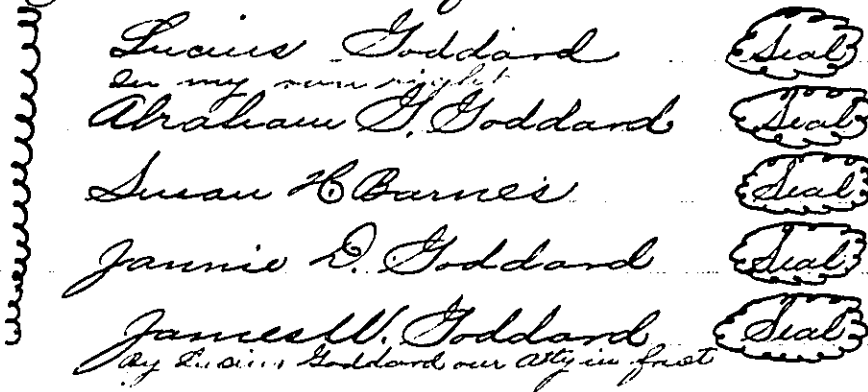 Lucius Goddard Seal
In my own right
Abraham G. Goddard Seal
Susan H Barnes Seal
Jannie D. Goddard Seal
James W. Goddard Seal
By Lucius Goddard our Atty in fact